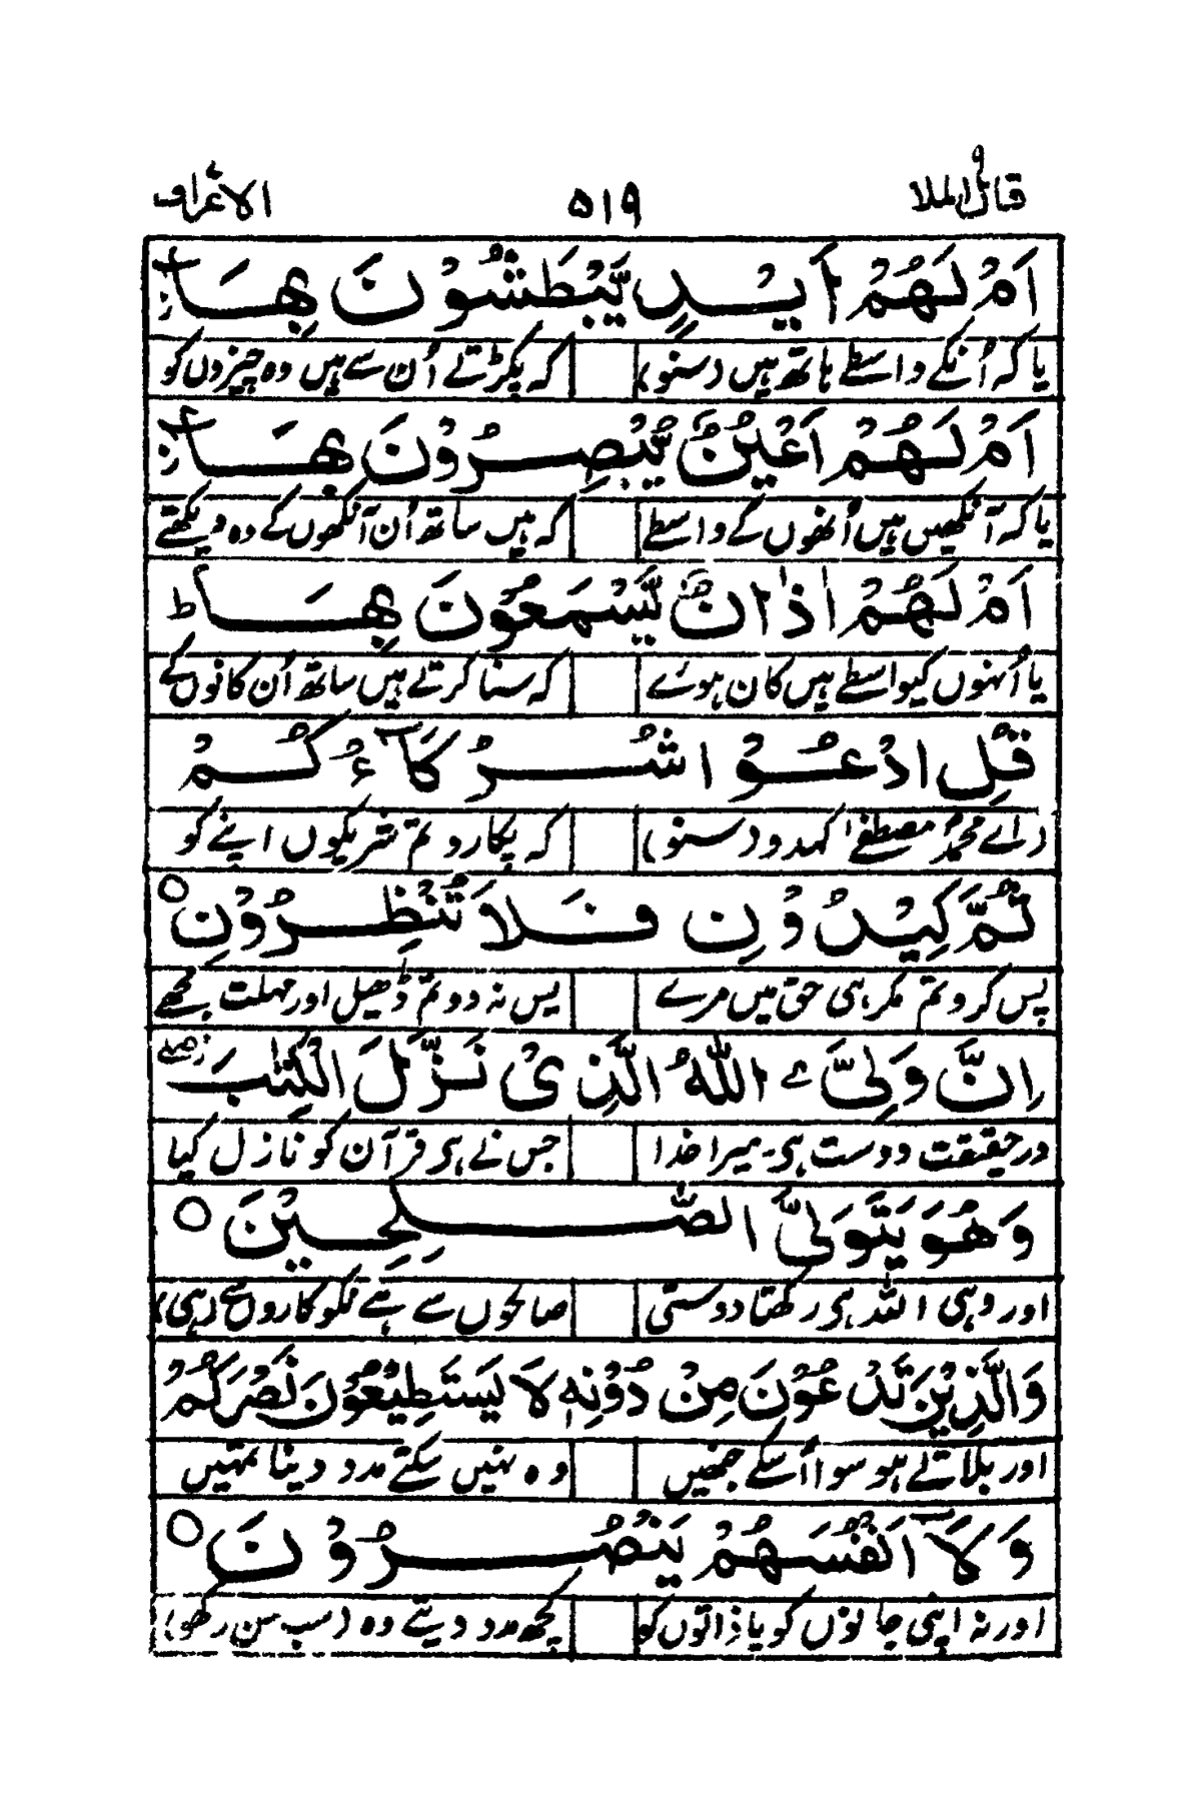 قال الملا ۹ ۵۱۹ الاعراف
اَمْ لَهُمْ اَيْدٍ يَّبْطِشُوْنَ بِهَآ ز
یا کہ اُنکے واسطے ہاتھ ہیں (سنو) کہ پکڑتے اُن سے ہیں وہ چیزوں کو
اَمْ لَهُمْ اَعْيُنٌ يُّبْصِرُوْنَ بِهَآ ز
یا کہ آنکھیں ہیں اُنھوں کے واسطے کہ ہیں ساتھ اُن آنکھوں کے وہ دیکھتے
اَمْ لَهُمْ اٰذَانٌ يَّسْمَعُوْنَ بِهَا ط
یا اُنہوں کیواسطے ہیں کان ہوئے کہ سنا کرتے ہیں ساتھ اُن کانوں کے
قُلِ ادْعُوْا شُرَكَآءَكُمْ
(اے محمدؐ مصطفےٰ کہدو سنو) کہ پکارو تم شریکوں اپنے کو
ثُمَّ كِيْدُوْنِ فَلَا تُنْظِرُوْنِ ○
پس کرو تم مکر ہی حق میں مرے پس نہ دو تم ڈھیل اور مہلت مجھے
اِنَّ وَلِيِّ ےَ اللّٰهُ الَّذِىْ نَزَّلَ الْكِتٰبَ ز صلے
درحقیقت دوست ہی میرا خدا جس نے ہی قرآن کو نازل کیا
وَهُوَ يَتَوَلَّى الصّٰلِحِيْنَ ○
اور وہی اللہ ہی رکھتا دوستی صالحوں سے ہے نکوکاروں سے (ہی)
وَالَّذِيْنَ تَدْعُوْنَ مِنْ دُوْنِهٖ لَا يَسْتَطِيْعُوْنَ نَصْرَكُمْ
اور بلاتے ہو سوا اُسکے جنھیں وہ نہیں سکتے مدد دینا تمہیں
وَلَآ اَنْفُسَهُمْ يَنْصُرُوْنَ ○
اور نہ اپنی جانوں کو یا ذاتوں کو کچھ مدد دیتے وہ (سب سن رکھو)